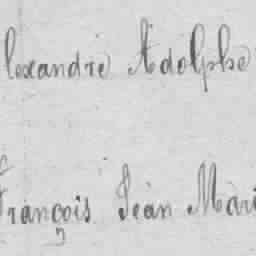 lexandre Adolphe
François Jean Mari